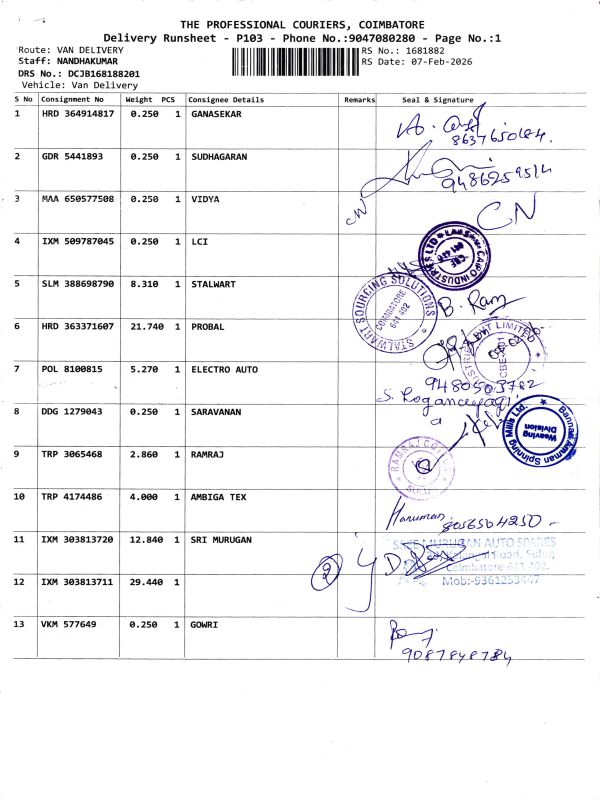 THE PROFESSIONAL COURIERS, COIMBATORE
Delivery Runsheet - P103 - Phone No.:9047080280 - Page No.:1
Route: VAN DELIVERY
RS No.: 1681882
Staff: NANDHAKUMAR
RS Date: 07-Feb-2026
DRS No.: DCJB168188201
Vehicle: Van Delivery
S No Consignment No Weight PCS Consignee Details Remarks Seal & Signature
1 HRD 364914817 0.250 1 GANASEKAR
8637650184.
2 GDR 5441893 0.250 1 SUDHAGARAN
9486259514
3 MAA 650577508 0.250 1 VIDYA
CN CN
4 IXM 509787045 0.250 1 LCI
5 SLM 388698790 8.310 1 STALWART
STALWART SOURCING SOLUTIONS
COIMBATORE
641 402
B. Ram
6 HRD 363371607 21.740 1 PROBAL
7 POL 8100815 5.270 1 ELECTRO AUTO
9480503782
8 DDG 1279043 0.250 1 SARAVANAN
Bannari Amman Spinning Mills Ltd.
Weaving
Division
9 TRP 3065468 2.860 1 RAMRAJ
10 TRP 4174486 4.000 1 AMBIGA TEX
Hanuman 8056504250
11 IXM 303813720 12.840 1 SRI MURUGAN
SREE MURUGAN AUTO SPARES
Road, Sulur,
Coimbatore-641 402.
Mob:-9361253447
2
12 IXM 303813711 29.440 1
13 VKM 577649 0.250 1 GOWRI
9087848784